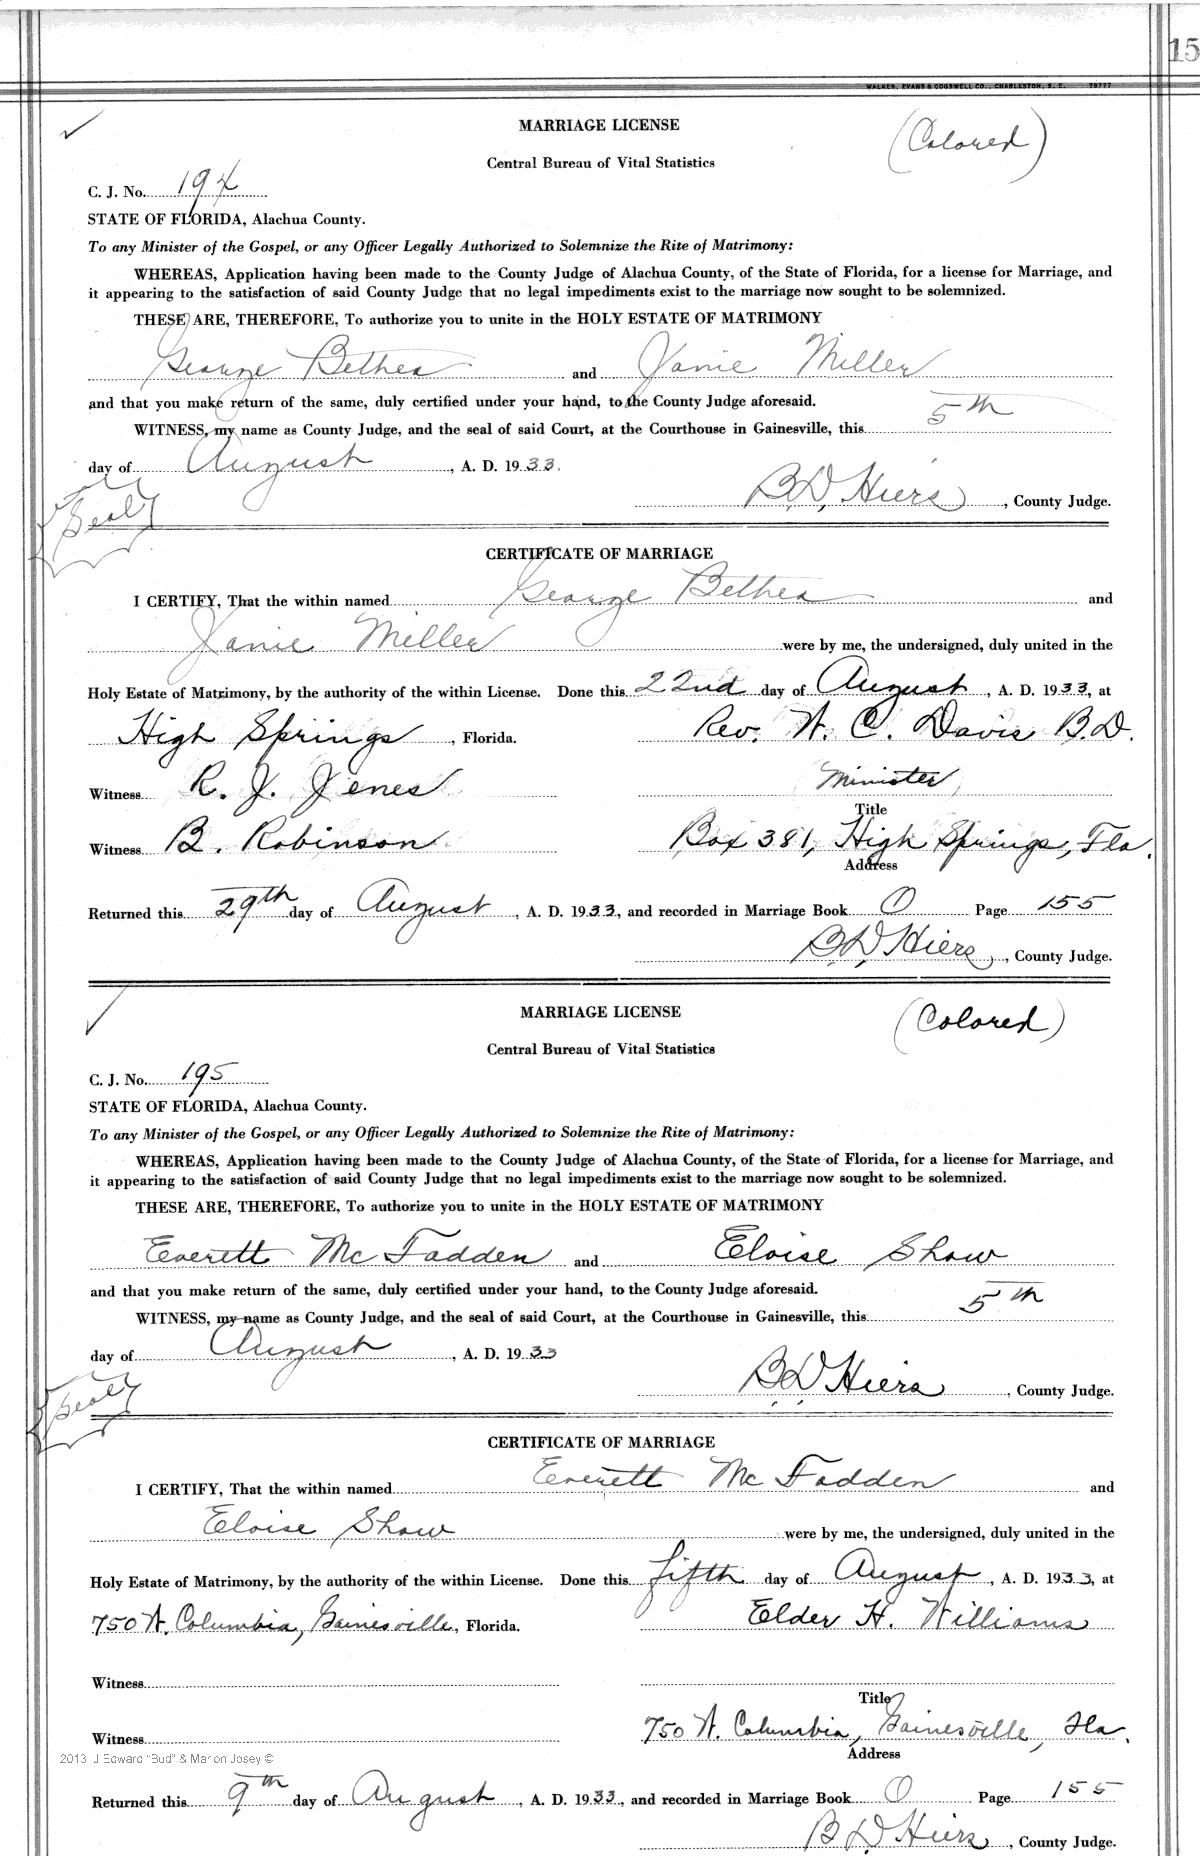 15
WALKER, EVANS & COGSWELL CO., CHARLESTON, S. C. 78777
MARRIAGE LICENSE
(Colored)
Central Bureau of Vital Statistics
C. J. No. 194
STATE OF FLORIDA, Alachua County.
To any Minister of the Gospel, or any Officer Legally Authorized to Solemnize the Rite of Matrimony:
WHEREAS, Application having been made to the County Judge of Alachua County, of the State of Florida, for a license for Marriage, and
it appearing to the satisfaction of said County Judge that no legal impediments exist to the marriage now sought to be solemnized.
THESE ARE, THEREFORE, To authorize you to unite in the HOLY ESTATE OF MATRIMONY
George Bethea and Janie Miller
and that you make return of the same, duly certified under your hand, to the County Judge aforesaid.
WITNESS, my name as County Judge, and the seal of said Court, at the Courthouse in Gainesville, this 5th
day of August, A. D. 1933.
Seal
B D Hiers, County Judge.
CERTIFICATE OF MARRIAGE
I CERTIFY, That the within named George Bethea and
Janie Miller were by me, the undersigned, duly united in the
Holy Estate of Matrimony, by the authority of the within License. Done this 22nd day of August, A. D. 1933, at
High Springs, Florida. Rev. W. C. Davis B.D.
Witness R. J. Jenes Minister
Title
Witness B. Robinson Box 381, High Springs, Fla.
Address
Returned this 29th day of August, A. D. 1933, and recorded in Marriage Book O Page 155
B D Hiers, County Judge.
MARRIAGE LICENSE
(Colored)
Central Bureau of Vital Statistics
C. J. No. 195
STATE OF FLORIDA, Alachua County.
To any Minister of the Gospel, or any Officer Legally Authorized to Solemnize the Rite of Matrimony:
WHEREAS, Application having been made to the County Judge of Alachua County, of the State of Florida, for a license for Marriage, and
it appearing to the satisfaction of said County Judge that no legal impediments exist to the marriage now sought to be solemnized.
THESE ARE, THEREFORE, To authorize you to unite in the HOLY ESTATE OF MATRIMONY
Everett McFadden and Eloise Shaw
and that you make return of the same, duly certified under your hand, to the County Judge aforesaid.
WITNESS, my name as County Judge, and the seal of said Court, at the Courthouse in Gainesville, this 5th
day of August, A. D. 1933
Seal
B D Hiers, County Judge.
CERTIFICATE OF MARRIAGE
I CERTIFY, That the within named Everett McFadden and
Eloise Shaw were by me, the undersigned, duly united in the
Holy Estate of Matrimony, by the authority of the within License. Done this fifth day of August, A. D. 1933, at
750 W. Columbia, Gainesville, Florida. Elder H. Williams
Witness
Title
Witness 750 W. Columbia, Gainesville, Fla.
2013 J Edward "Bud" & Marion Josey ©
Address
Returned this 9th day of August, A. D. 1933, and recorded in Marriage Book O Page 155
B D Hiers, County Judge.